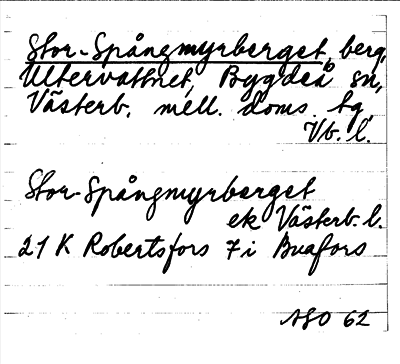 Stor-Spångmyrberget, berg,
Ultervattnet, Bygdeå sn,
Västerb. mell. doms. tg
Vb. l.
Stor-Spångmyrberget
ek Västerb. l.
21 K Robertsfors 7 i Buafors
ASO 62